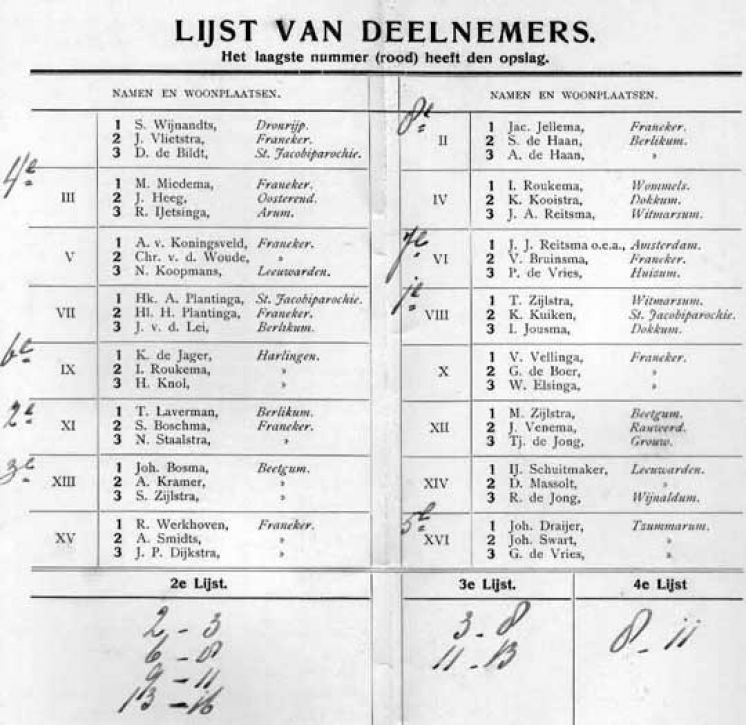 LIJST VAN DEELNEMERS.
Het laagste nummer (rood) heeft den opslag.
NAMEN EN WOONPLAATSEN.
1 S. Wijnandts, Dronrijp.
2 J. Vlietstra, Franeker.
3 D. de Bildt, St. Jacobiparochie.
4e
III
1 M. Miedema, Franeker.
2 J. Heeg, Oosterend.
3 R. IJetsinga, Arum.
V
1 A. v. Koningsveld, Franeker.
2 Chr. v. d. Woude, »
3 N. Koopmans, Leeuwarden.
VII
1 Hk. A. Plantinga, St. Jacobiparochie.
2 Hl. H. Plantinga, Franeker.
3 J. v. d. Lei, Berlikum.
6e
IX
1 K. de Jager, Harlingen.
2 I. Roukema, »
3 H. Knol, »
2e
XI
1 T. Laverman, Berlikum.
2 S. Boschma, Franeker.
3 N. Staalstra, »
3e
XIII
1 Joh. Bosma, Beetgum.
2 A. Kramer, »
3 S. Zijlstra, »
XV
1 R. Werkhoven, Franeker.
2 A. Smidts, »
3 J. P. Dijkstra, »
NAMEN EN WOONPLAATSEN.
8e
II
1 Jac. Jellema, Franeker.
2 S. de Haan, Berlikum.
3 A. de Haan, »
IV
1 I. Roukema, Wommels.
2 K. Kooistra, Dokkum.
3 J. A. Reitsma, Witmarsum.
7e
VI
1 J. J. Reitsma o.e.a., Amsterdam.
2 V. Bruinsma, Franeker.
3 P. de Vries, Huizum.
1e
VIII
1 T. Zijlstra, Witmarsum.
2 K. Kuiken, St. Jacobiparochie.
3 I. Jousma, Dokkum.
X
1 V. Vellinga, Franeker.
2 G. de Boer, »
3 W. Elsinga, »
XII
1 M. Zijlstra, Beetgum.
2 J. Venema, Rauwerd.
3 Tj. de Jong, Grouw.
XIV
1 IJ. Schuitmaker, Leeuwarden.
2 D. Massolt, »
3 R. de Jong, Wijnaldum.
5e
XVI
1 Joh. Draijer, Tzummarum.
2 Joh. Swart, »
3 G. de Vries, »
2e Lijst.
2 - 3
6 - 8
9 - 11
13 - 16
3e Lijst.
3 - 8
11 - 13
4e Lijst
8 - 11